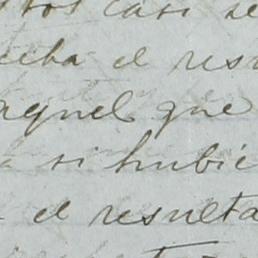 casi se
el resu
aquel que
si hubié
el resulta